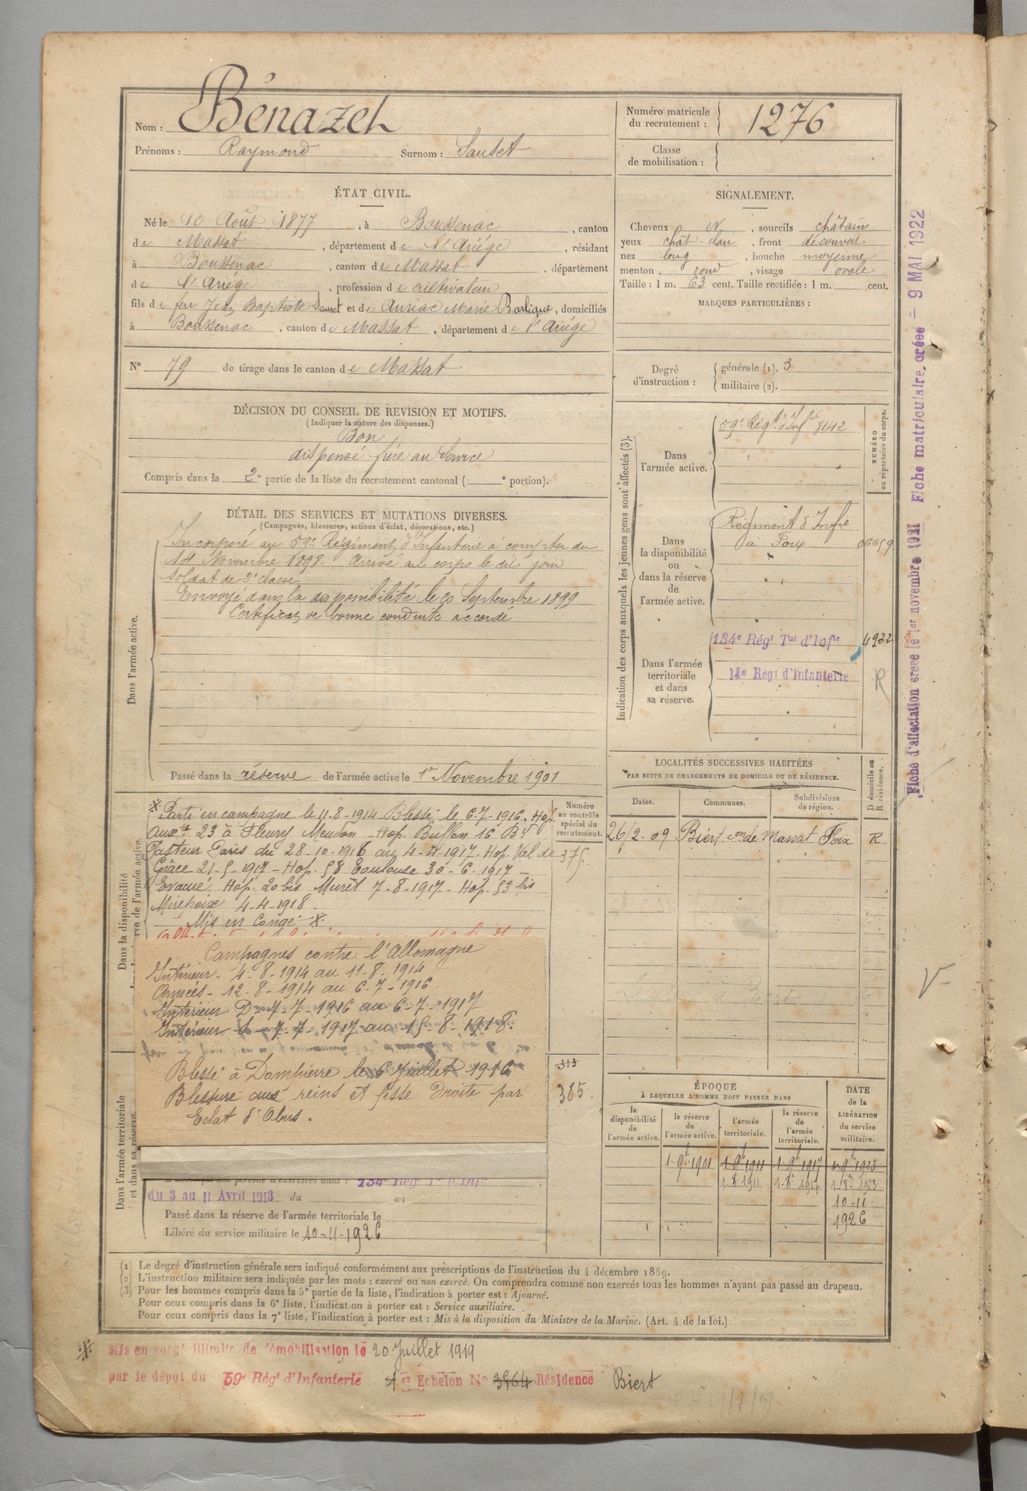 Nom : Bénazet
Prénoms : Raymond Surnom : Sautet
Numéro matricule du recrutement : 1276
Classe de mobilisation :
ÉTAT CIVIL.
Né le 10 Août 1877, à Boussenac, canton
de Massat, département de l'Ariège, résidant
à Boussenac, canton de Massat, département
de l'Ariège, profession de cultivateur
fils de feu Jean Baptiste Sautet et de Auriac Marie, domiciliés
à Boussenac, canton de Massat, département de l'Ariège
N° 79 de tirage dans le canton de Massat
SIGNALEMENT.
Cheveux N, sourcils châtain
yeux chât. clair, front découvert
nez long, bouche moyenne
menton rond, visage ovale
Taille : 1 m. 63 cent. Taille rectifiée : 1 m. cent.
MARQUES PARTICULIÈRES :
Degré d'instruction : générale (1). 3
militaire (2).
DÉCISION DU CONSEIL DE REVISION ET MOTIFS.
(Indiquer la nature des dispenses.)
Bon
dispensé frère au service
Compris dans la 2e partie de la liste du recrutement cantonal ( e portion).
DÉTAIL DES SERVICES ET MUTATIONS DIVERSES.
(Campagnes, blessures, actions d'éclat, décorations, etc.)
Dans l'armée active.
Incorporé au 59e Régiment d'Infanterie à compter du
14 Novembre 1898 Arrivé au corps le dit jour
soldat de 2e classe
Envoyé dans la disponibilité le 20 Septembre 1899
Certificat de bonne conduite accordé
Passé dans la réserve de l'armée active le 1er Novembre 1901
Indication des corps auxquels les jeunes gens sont affectés (3).
NUMÉRO au répertoire du corps.
Dans l'armée active.
59e Régt d'Infie 8142
Dans la disponibilité ou dans la réserve de l'armée active.
Régiment d'Infie
à Foix
Dans l'armée territoriale et dans sa réserve.
134e Régt Tal d'Infie 4922
14e Régt d'Infanterie R
LOCALITÉS SUCCESSIVES HABITÉES
PAR SUITE DE CHANGEMENTS DE DOMICILE OU DE RÉSIDENCE.
Dates. Communes. Subdivisions de région. D domicile ou R résidence.
26-2-09 Biert con de Massat Foix R
Dans la disponibilité
Numéro au contrôle spécial du recrutement.
375
* Parti en campagne le 11-8-1914 Blessé le 6-7-1916. Hop
auxre 23 à Fleury Meudon - Hop. Buffon 16 Bd
Pasteur Paris du 28-10-1916 au 4-4-1917. Hop. Val de
Grâce 21-5-1917 - Hop. 58 Toulouse 30-6-1917 -
Evacué Hop. 20 bis Muret 7-8-1917 - Hop. 53 bis
Mirepoix 4-4-1918.
Mis en congé *
Campagnes contre l'Allemagne
Intérieur - 4-8-1914 au 11-8-1914
Armées - 12-8-1914 au 6-7-1916
Intérieur D - 7-7-1916 au 6-7-1917
Intérieur - 7-7-1917 au 15-8-1918.
Blessé à Dompierre le 6 Juillet 1916
Blessure aux reins et fesse droite par
Eclat d'Obus.
313
385.
Dans l'armée territoriale et dans sa réserve.
134e Régt Tal d'Infie
du 3 au 11 Avril 1913 du au
Passé dans la réserve de l'armée territoriale le
Libéré du service militaire le 10-11-1926
ÉPOQUE
À LAQUELLE L'HOMME DOIT PASSER DANS
la disponibilité de l'armée active. la réserve de l'armée active. l'armée territoriale. la réserve de l'armée territoriale. DATE de la LIBÉRATION du service militaire.
1-9bre 1901 1-9bre 1911 1-9bre 1917 1-9bre 1923
10-11-
1926
(1) Le degré d'instruction générale sera indiqué conformément aux prescriptions de l'instruction du 4 décembre 1889.
(2) L'instruction militaire sera indiquée par les mots : exercé ou non exercé. On comprendra comme non exercés tous les hommes n'ayant pas passé au drapeau.
(3) Pour les hommes compris dans la 5e partie de la liste, l'indication à porter est : Ajourné.
Pour ceux compris dans la 6e liste, l'indication à porter est : Service auxiliaire.
Pour ceux compris dans la 7e liste, l'indication à porter est : Mis à la disposition du Ministre de la Marine. (Art. 4 de la loi.)
* Mis en congé illimité de démobilisation le 20 Juillet 1919
par le dépôt du 59e Régt d'Infanterie 1er Echelon N° 3964 Résidence Biert
Fiche d'affectation créée le 1er novembre 1921 Fiche matriculaire, créée - 9 MAI 1922
V